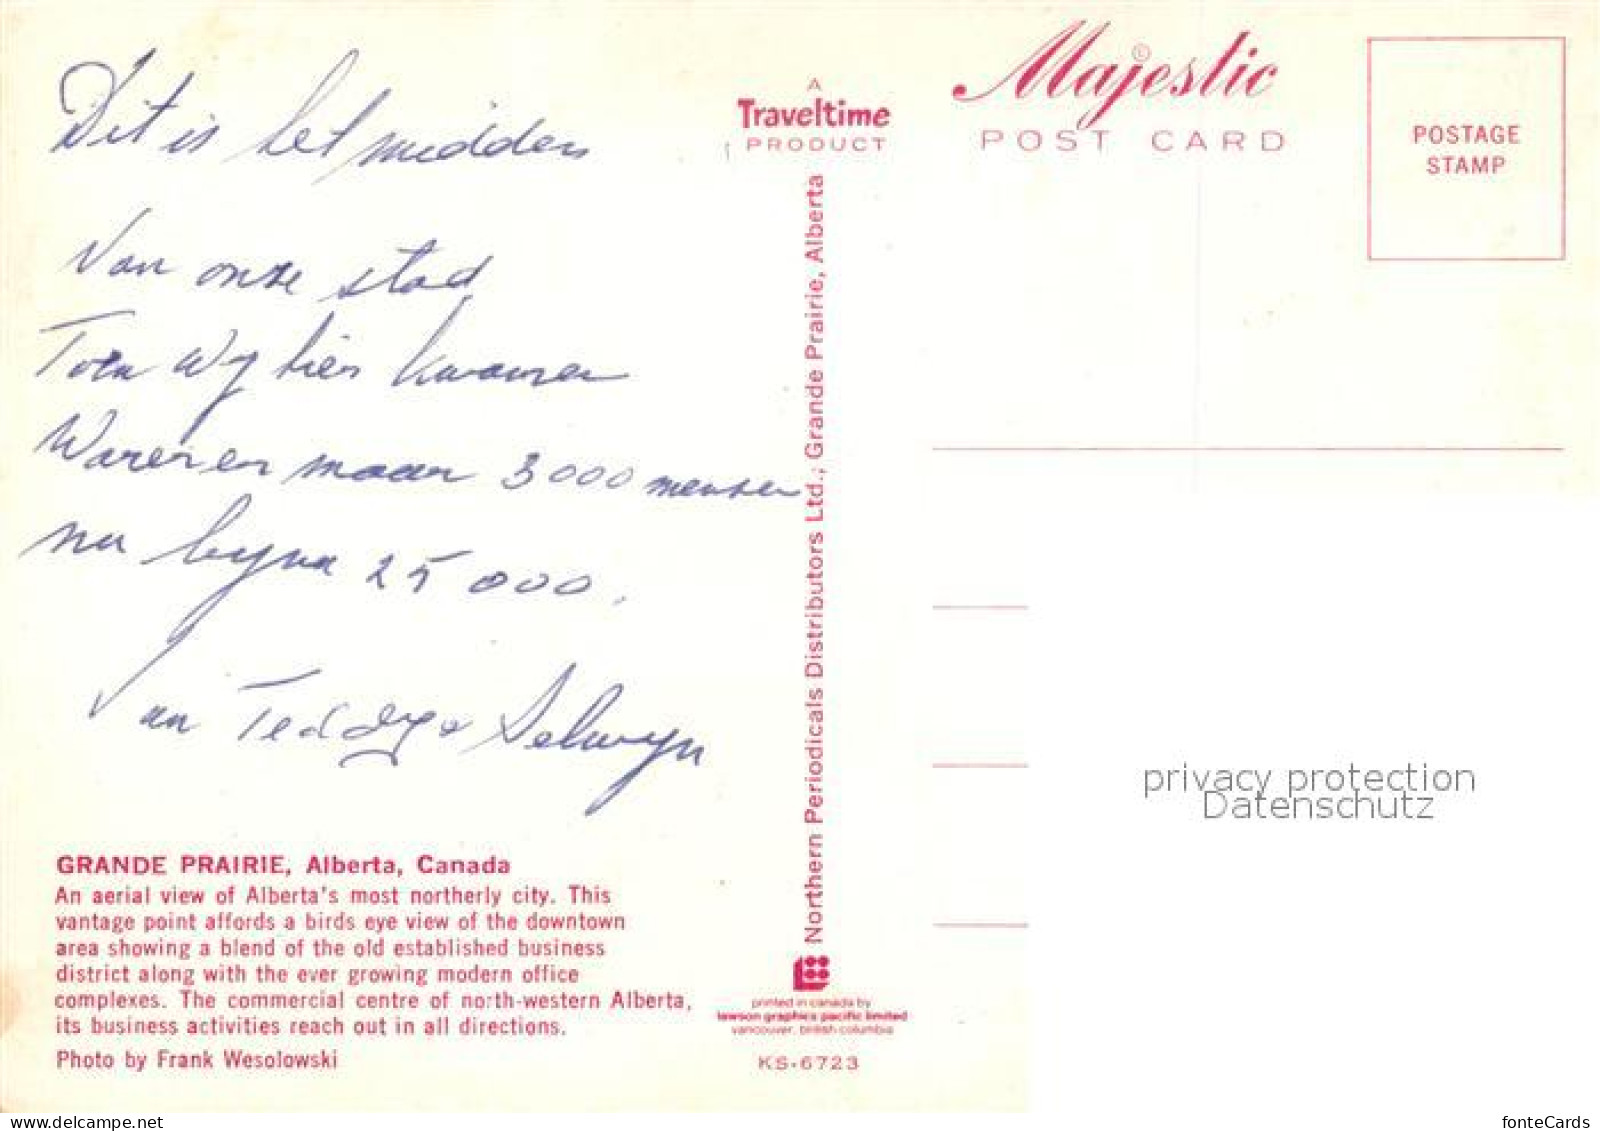 Dit is het midden
Van onze stad
Toen wy hier kwamen
Waren er maar 3000 mensen
nu byna 25 000.
Van Teddy & Selwyn
GRANDE PRAIRIE, Alberta, Canada
An aerial view of Alberta's most northerly city. This
vantage point affords a birds eye view of the downtown
area showing a blend of the old established business
district along with the ever growing modern office
complexes. The commercial centre of north-western Alberta,
its business activities reach out in all directions.
Photo by Frank Wesolowski
A
Traveltime
PRODUCT
Northern Periodicals Distributors Ltd.; Grande Prairie, Alberta
printed in canada by
lawson graphics pacific limited
vancouver, british columbia
KS-6723
Majestic ©
POST CARD
POSTAGE
STAMP
privacy protection
Datenschutz
www.delcampe.net
fonteCards